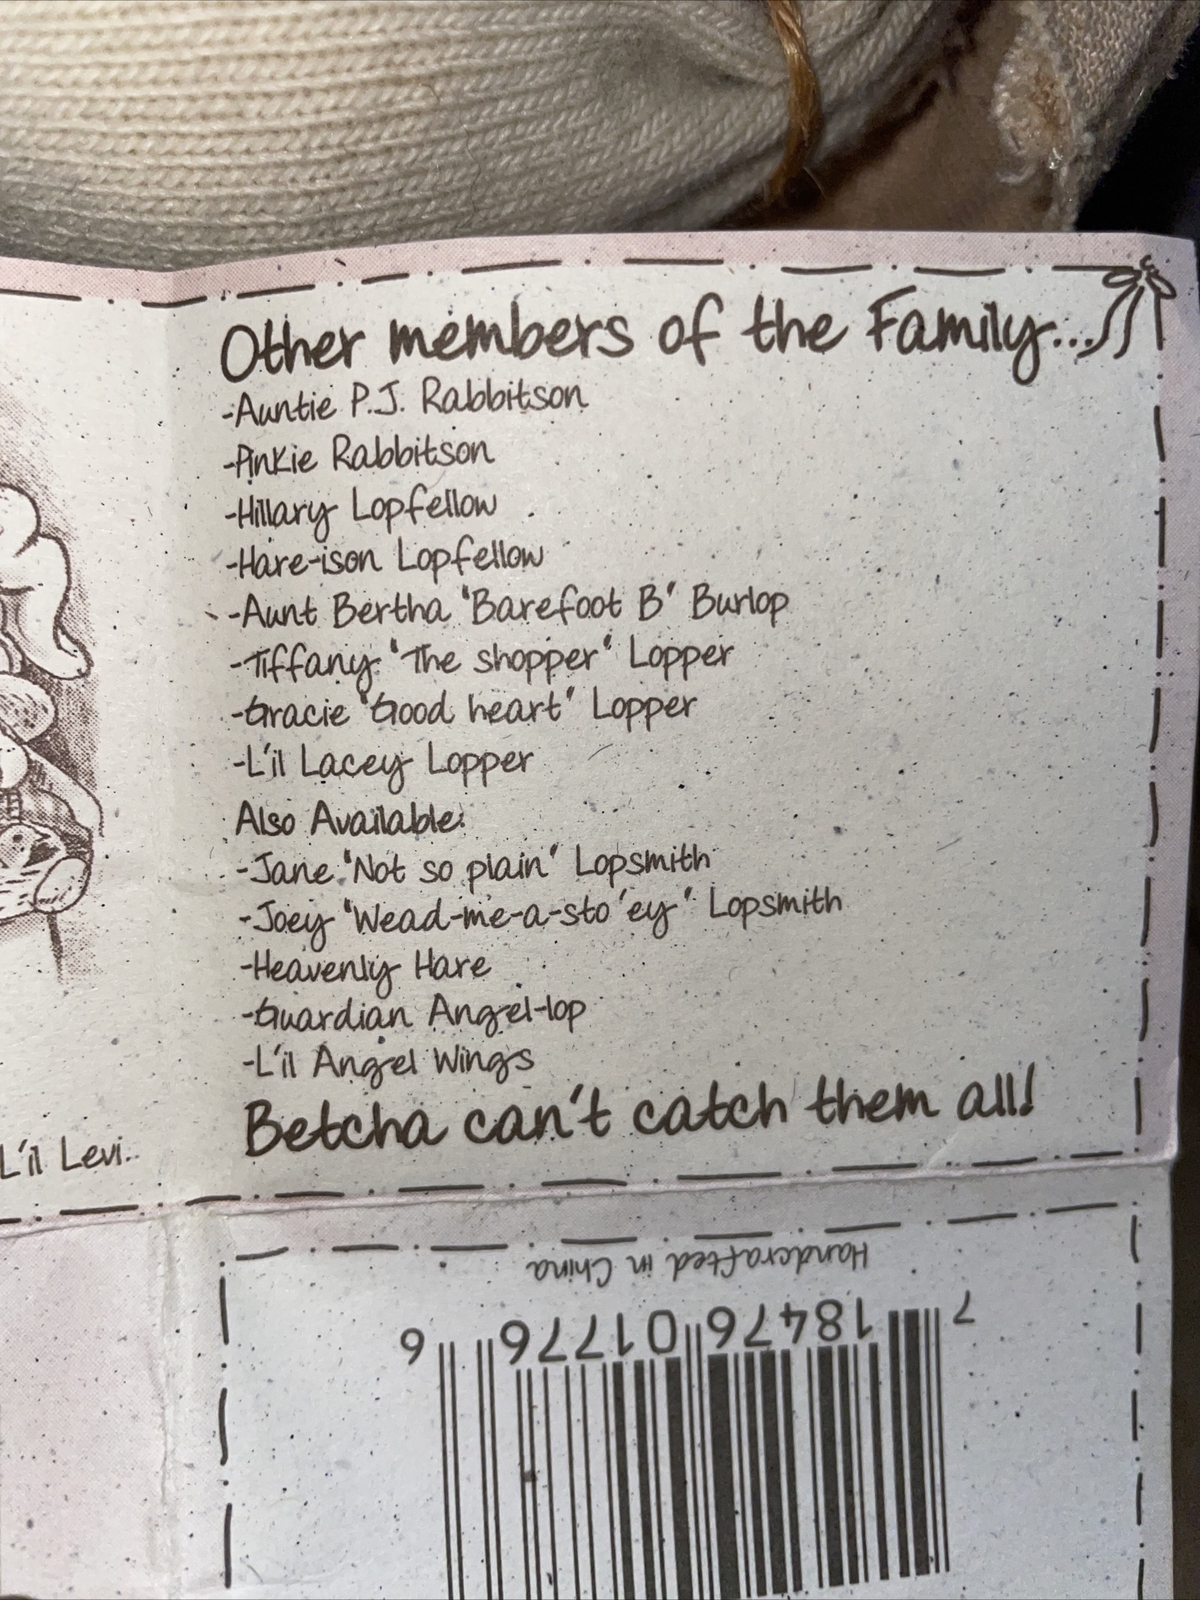 Other members of the Family...
-Auntie P.J. Rabbitson
-Pinkie Rabbitson
-Hillary Lopfellow
-Hare-ison Lopfellow
-Aunt Bertha "Barefoot B" Burlop
-Tiffany "The shopper" Lopper
-Gracie "Good heart" Lopper
-L'il Lacey Lopper
Also Available:
-Jane "Not so plain" Lopsmith
-Joey "Wead-me-a-sto'ey" Lopsmith
-Heavenly Hare
-Guardian Angel-lop
-L'il Angel Wings
Betcha can't catch them all!
L'il Levi.
Handcrafted in China
7 18476 01776 6